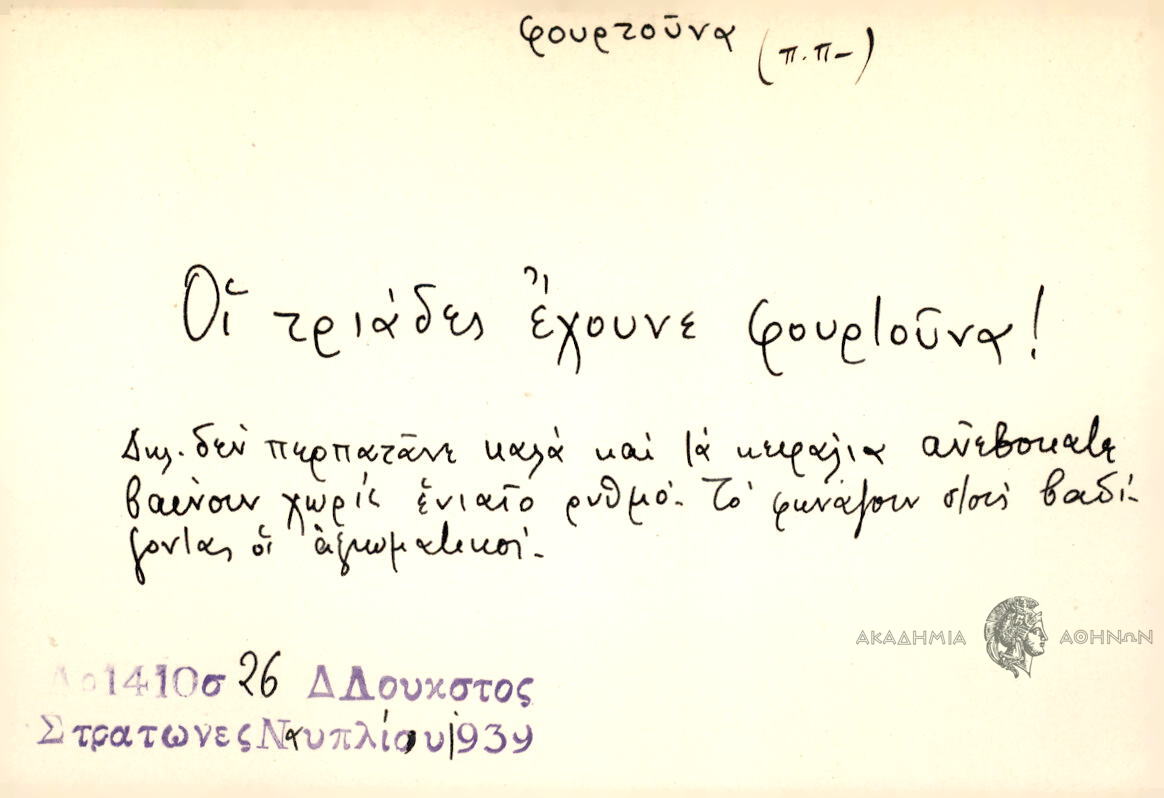 φουρτοῦνα (π.π-)
Οἱ τριάδες ἔχουνε φουρτοῦνα!
Δηλ. δεν περπατᾶνε καλά και τά κεφάλια ἀνεβοκατε
βαίνουν χωρίς ἑνιαῖο ρυθμό. Το φωνάζουν στούς βαδί-
ζοντας οἱ ἀξιωματικοί.
ΑΚΑΔΗΜΙΑ ΑΘΗΝΩΝ
Αρ1410σ 26 ΔΛουκατος
Στρατωνες Ναυπλίου 1939